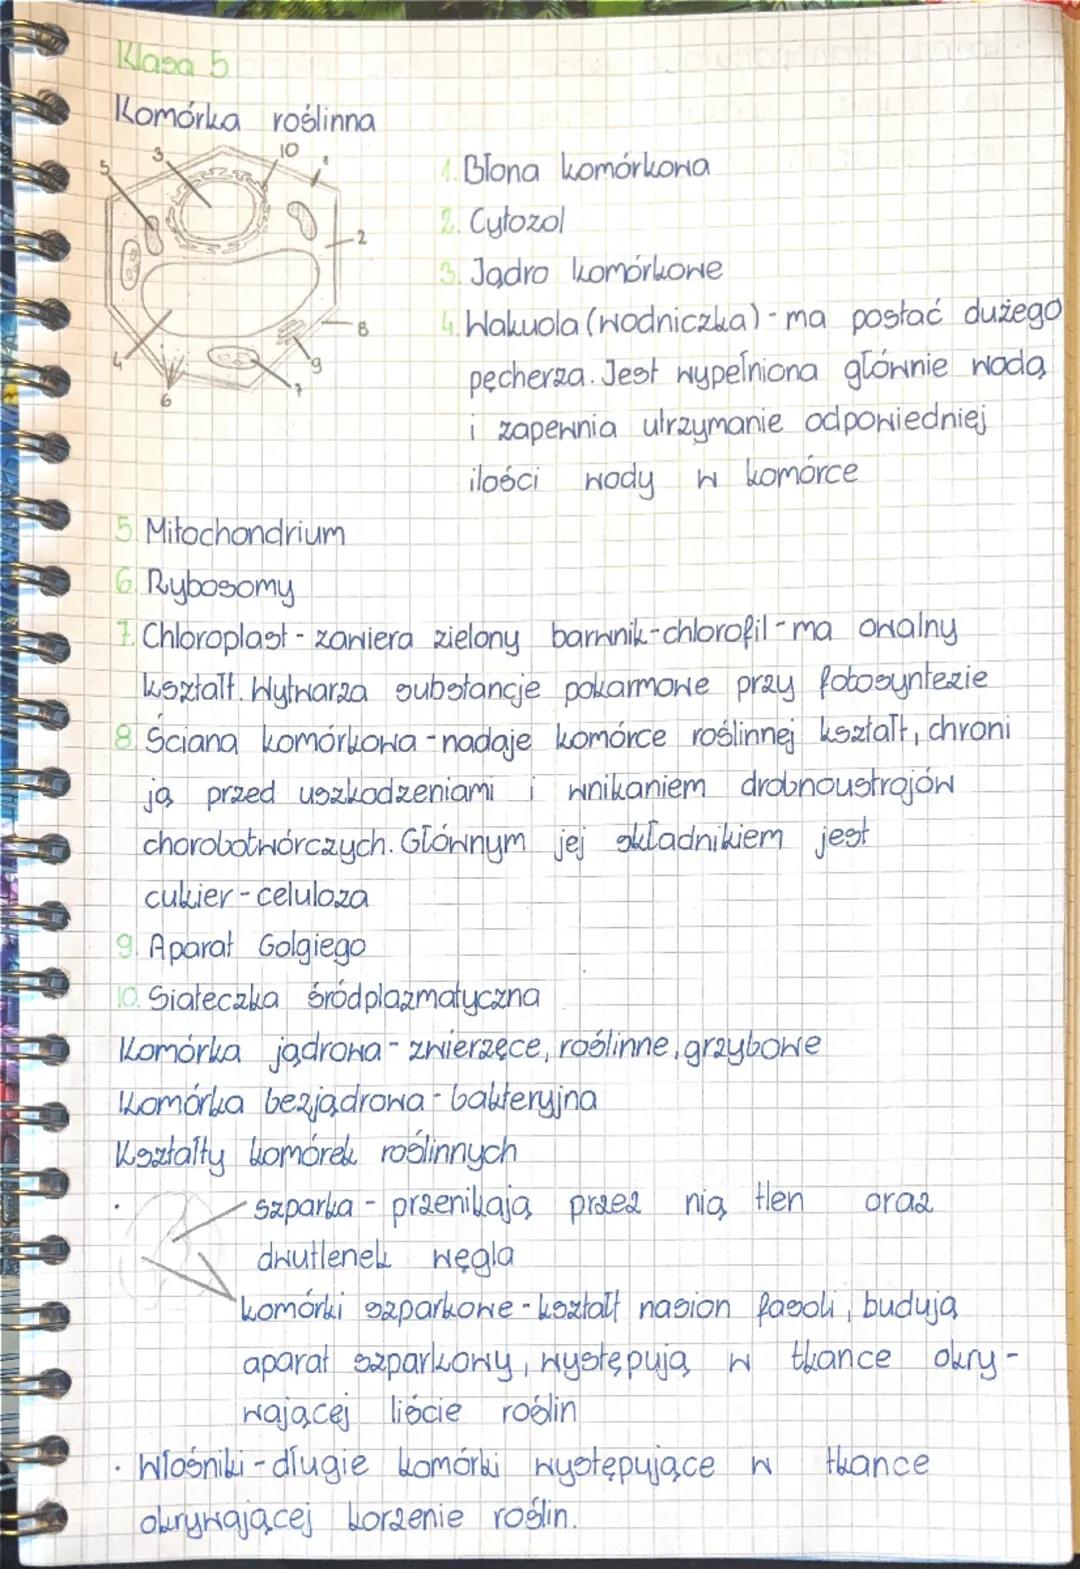 Klasa 5
Komórka roślinna
3
10
1
5
2
8
4
9
7
6
1. Błona komórkowa
2. Cytozol
3. Jądro komórkowe
4. Wakuola (wodniczka) - ma postać dużego
pęcherza. Jest wypełniona głównie wodą
i zapewnia utrzymanie odpowiedniej
ilości wody w komórce
5. Mitochondrium
6. Rybosomy
7. Chloroplast - zawiera zielony barwnik-chlorofil - ma owalny
kształt. Wytwarza substancje pokarmowe przy fotosyntezie
8. Ściana komórkowa - nadaje komórce roślinnej kształt, chroni
ją przed uszkodzeniami i wnikaniem drobnoustrojów
chorobotwórczych. Głównym jej składnikiem jest
cukier - celuloza
9. Aparat Golgiego
10. Siateczka śródplazmatyczna
Komórka jądrowa - zwierzęce, roślinne, grzybowe
Komórka bezjądrowa - bakteryjna
Kształty komórek roślinnych
• szparka - przenikają przez nią tlen oraz
dwutlenek węgla
komórki szparkowe - kształt nasion fasoli, budują
aparat szparkowy, występują w tkance okry-
wającej liście roślin
• Włośniki - długie komórki występujące w tkance
okrywającej korzenie roślin.